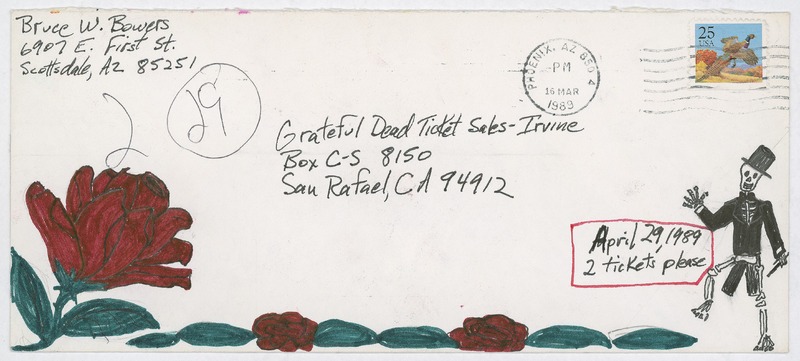 Bruce W. Bowers
6907 E. First St.
Scottsdale, AZ 85251
2
29
PHOENIX, AZ 850 4
PM
16 MAR
1989
25
USA
Grateful Dead Ticket Sales-Irvine
Box C-S 8150
San Rafael, CA 94912
April 29, 1989
2 tickets, please